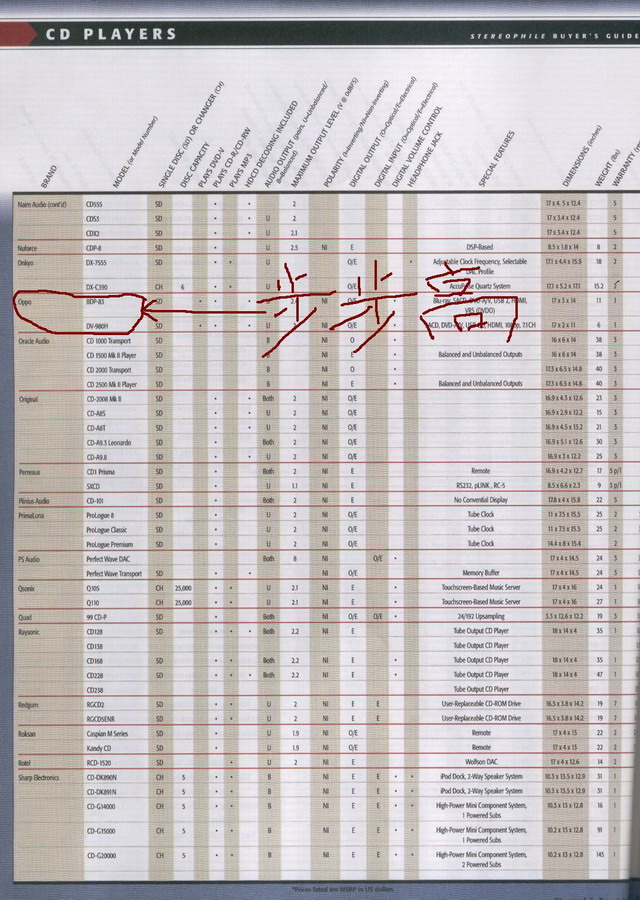 CD PLAYERS
STEREOPHILE BUYER'S GUIDE
BRAND MODEL (or Model Number) SINGLE DISC (SD) OR CHANGER (CH) DISC CAPACITY PLAYS DVD-V PLAYS CD-R/CD-RW PLAYS MP3 HDCD DECODING INCLUDED AUDIO OUTPUT (pairs, U=Unbalanced/B=Balanced) MAXIMUM OUTPUT LEVEL (V @ 0dBFS) POLARITY (I=Inverting/NI=Non-Inverting) DIGITAL OUTPUT (O=Optical/E=Electrical) DIGITAL INPUT (O=Optical/E=Electrical) DIGITAL VOLUME CONTROL HEADPHONE JACK SPECIAL FEATURES DIMENSIONS (inches) WEIGHT (lbs) WARRANTY
Naim Audio (cont'd) CD555 SD • • 2 17 x 4.5 x 12.4 5
CDS3 SD • • U 2 17 x 3.4 x 12.4 5
CDX2 SD • • U 2.1 17 x 3.4 x 12.4 5
Nuforce CDP-8 SD • U 2.5 NI E DSP-Based 8.5 x 1.8 x 14 8 2
Onkyo DX-7555 SD • • U 2 O/E • Adjustable Clock Frequency, Selectable
Profile 17.1 x 4.4 x 15.9 18 2
DX-C390 CH 6 • • U O/E Quartz System 17.1 x 5.2 x 17.1 15.2
Oppo BDP-83 SD • • 17 x 3 x 14 11 1
DV-980H SD 17 x 2 x 11 6 1
Oracle Audio CD 1000 Transport SD • B NI O • 16 x 6 x 14 38 3
CD 1500 Mk II Player SD • B NI E • Balanced and Unbalanced Outputs 16 x 6 x 14 38 3
CD 2000 Transport SD • B NI O • 17.3 x 6.5 x 14.8 40 3
CD 2500 Mk II Player SD • B NI E • Balanced and Unbalanced Outputs 17.3 x 6.5 x 14.8 40 3
Original CD-2008 Mk II SD • • Both 2 NI O/E 16.9 x 4.3 x 12.6 23 3
CD-A8S SD • • U 2 NI O/E 16.9 x 2.9 x 12.2 15 3
CD-A8T SD • • U 2 NI O/E 16.9 x 4.5 x 13.2 21 3
CD-A9.3 Leonardo SD • Both 2 NI O/E 16.9 x 5.1 x 12.6 30 3
CD-A9.8 SD • • U 2 NI O/E 16.9 x 3 x 12.2 25 3
Perreaux CD1 Prisma SD • Both 2 NI E Remote 16.9 x 4.2 x 12.7 17 5 p/l
SXCD SD • U 1.1 NI E RS232, pLINK, RC-5 8.5 x 6.6 x 2.3 9 3 p/l
Plinius Audio CD-101 SD • Both 2 NI E No Convential Display 17.8 x 4 x 15.8 22 5
PrimaLuna ProLogue 8 SD • U 2 NI O/E Tube Clock 11 x 7.5 x 15.5 25 2
ProLogue Classic SD • U 2 NI O/E Tube Clock 11 x 7.5 x 15.5 25 2
ProLogue Premium SD • U 2 NI O/E Tube Clock 14.4 x 8 x 15.4 2
PS Audio Perfect Wave DAC Both 8 NI O/E • 17 x 4 x 14.5 24 3
Perfect Wave Transport SD • • NI O/E Memory Buffer 17 x 4 x 14.5 24 3
Qsonix Q105 CH 25,000 • • U 2.1 NI E • Touchscreen-Based Music Server 17 x 4 x 16 24 1
Q110 CH 25,000 • • U 2.1 NI E • Touchscreen-Based Music Server 17 x 4 x 16 27 1
Quad 99 CD-P SD • Both NI O/E O/E • 24/192 Upsampling 3.3 x 12.6 x 12.2 19 3
Raysonic CD128 SD • • • Both 2.2 NI E • Tube Output CD Player 18 x 14 x 4 35 1
CD138 Tube Output CD Player
CD168 SD • • Both 2.2 NI E • Tube Output CD Player 18 x 14 x 4 35 1
CD228 SD • • • Both 2.2 NI E • Tube Output CD Player 18 x 14 x 4 47 1
CD238 Tube Output CD Player
Redgum RGCD2 SD • U 2 NI E E User-Replaceable CD-ROM Drive 16.5 x 3.8 x 14.2 19 7
RGCD5ENR SD • U 2 NI E E User-Replaceable CD-ROM Drive 16.5 x 3.8 x 14.2 19 7
Roksan Caspian M Series SD • U 1.9 NI O/E Remote 17 x 4 x 13 22 2
Kandy CD SD • U 1.9 NI O/E Remote 17 x 4 x 13 22 2
Rotel RCD-1520 SD • U 2 NI E Wolfson DAC 17 x 4 x 12.6 14 2
Sharp Electronics CD-DK890N CH 5 • • B NI E E • • iPod Dock, 2-Way Speaker System 10.3 x 13.5 x 12.9 31 1
CD-DK891N CH 5 • • B NI E E • • iPod Dock, 2-Way Speaker System 10.3 x 13.5 x 12.9 31 1
CD-G14000 CH 5 • • B NI E E • • High-Power Mini Component System,
1 Powered Subs 10.3 x 13 x 12.8 16 1
CD-G15000 CH 5 • • B NI E E • • High-Power Mini Component System,
1 Powered Subs 10.2 x 13 x 12.8 91 1
CD-G20000 CH 5 • • B NI E E • • High-Power Mini Component System,
2 Powered Subs 10.2 x 13 x 12.8 145 1
*Prices listed are MSRP in US dollars